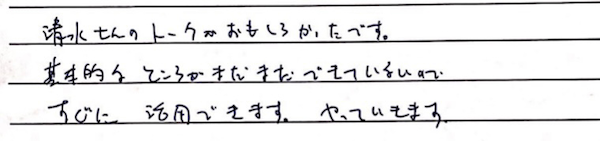 清水さんのトークがおもしろかったです。
基本的なところがまだまだできていないので
すぐに 活用できます。 やっていきます